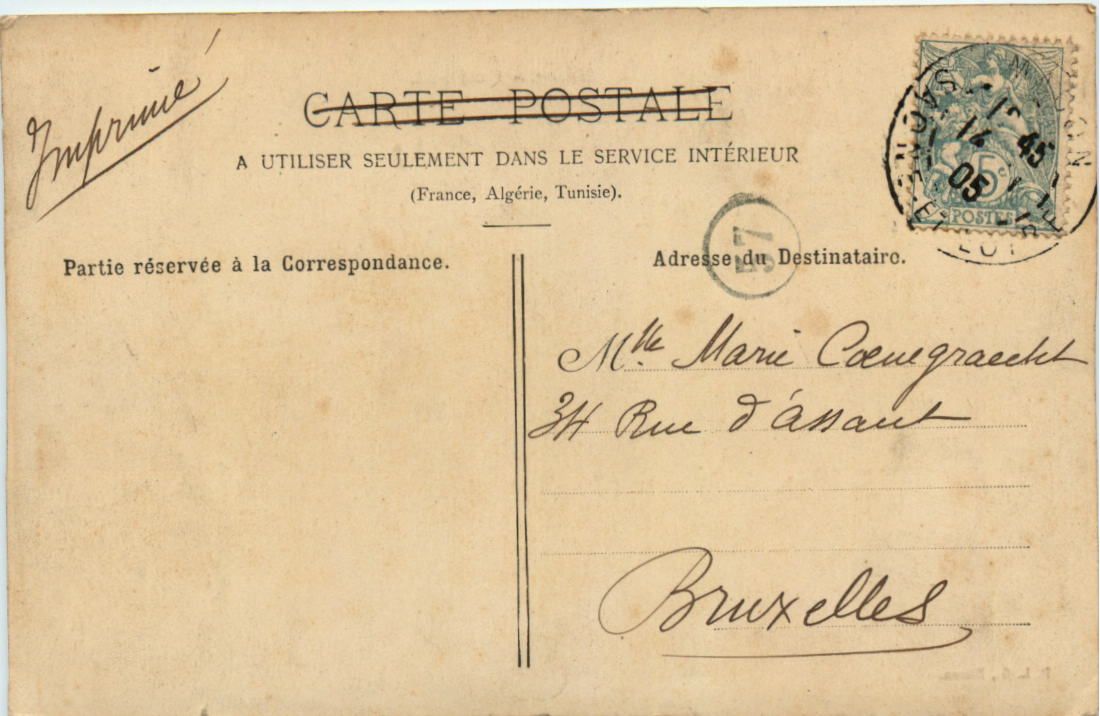 Imprimé
CARTE POSTALE
A UTILISER SEULEMENT DANS LE SERVICE INTÉRIEUR
(France, Algérie, Tunisie).
Partie réservée à la Correspondance.
Adresse du Destinataire.
57
5c
POSTES
SAONE-ET-LOIRE
14
45
05
Mlle Marie Coenegraecht
34 Rue d'Assaut
Bruxelles